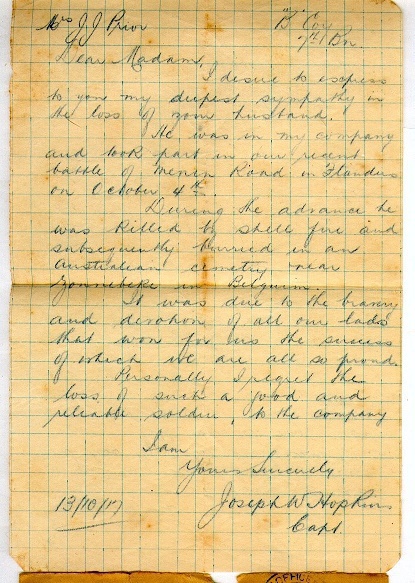 Mrs J J Prior
B Coy
7th Bn.
Dear Madam,
I desire to express
to you my deepest sympathy in
the loss of your husband.
He was in my company
and took part in our recent
battle of Menin Road in Flanders
on October 4th.
During the advance he
was killed by shell fire and
subsequently burried in an
Australian cemetry near
Zonnebeke in Belguim.
It was due to the bravery
and devotion of all our lads
that won for us the success
of which we are all so proud.
Personally I regret the
loss of such a good and
reliable soldier, to the company
I am
Yours Sincerely
Joseph W Hopkins
Capt.
13/10/17